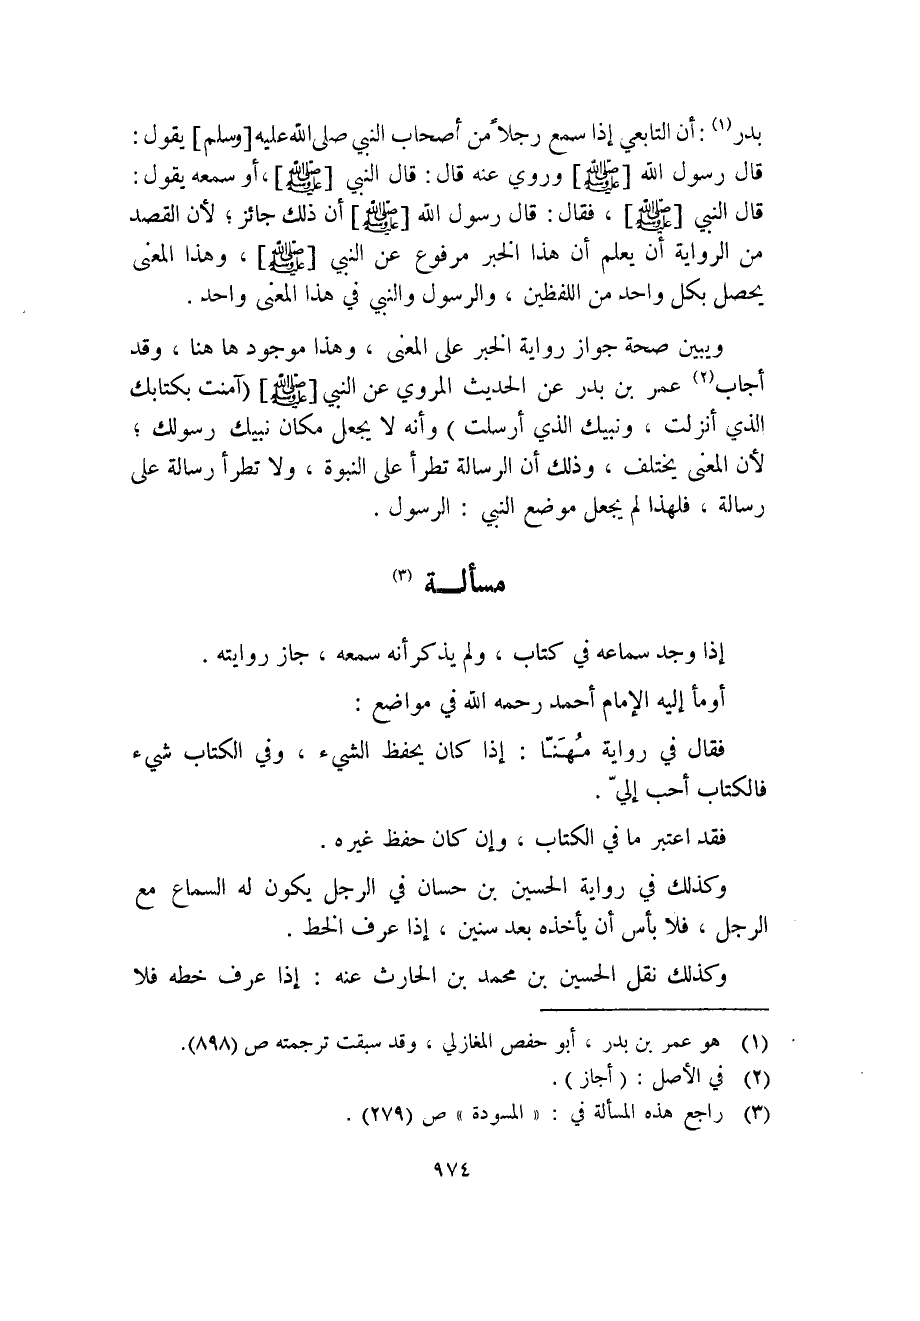 بدر(١) : أن التابعي إذا سمع رجلاً من أصحاب النبي صلى الله عليه [وسلم] يقول :
قال رسول الله [ﷺ] وروي عنه قال : قال النبي [ﷺ] ، أو سمعه يقول :
قال النبي [ﷺ] ، فقال : قال رسول الله [ﷺ] أن ذلك جائز ؛ لأن القصد
من الرواية أن يعلم أن هذا الخبر مرفوع عن النبي [ﷺ] ، وهذا المعنى
يحصل بكل واحد من اللفظين ، والرسول والنبي في هذا المعنى واحد .
ويبين صحة جواز رواية الخبر على المعنى ، وهذا موجود ها هنا ، وقد
أجاب(٢) عمر بن بدر عن الحديث المروي عن النبي [ﷺ] (آمنت بكتابك
الذي أنزلت ، ونبيك الذي أرسلت ) وأنه لا يجعل مكان نبيك رسولك ؛
لأن المعنى يختلف ، وذلك أن الرسالة تطرأ على النبوة ، ولا تطرأ رسالة على
رسالة ، فلهذا لم يجعل موضع النبي : الرسول .
مسألــة (٣)
إذا وجد سماعه في كتاب ، ولم يذكر أنه سمعه ، جاز روايته .
أومأ إليه الإمام أحمد رحمه الله في مواضع :
فقال في رواية مُهَنّا : إذا كان يحفظ الشيء ، وفي الكتاب شيء
فالكتاب أحب إليّ .
فقد اعتبر ما في الكتاب ، وإن كان حفظ غيره .
وكذلك في رواية الحسين بن حسان في الرجل يكون له السماع مع
الرجل ، فلا بأس أن يأخذه بعد سنين ، إذا عرف الخط .
وكذلك نقل الحسين بن محمد بن الحارث عنه : إذا عرف خطه فلا
(١) هو عمر بن بدر ، أبو حفص المغازلي ، وقد سبقت ترجمته ص (٨٩٨).
(٢) في الأصل : ( أجاز ) .
(٣) راجع هذه المسألة في : « المسودة » ص (٢٧٩) .
٩٧٤